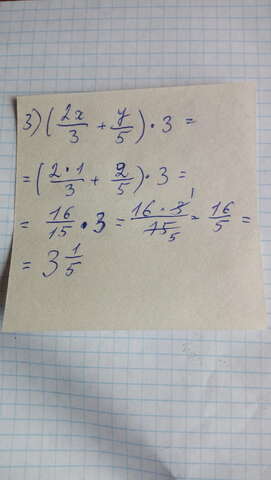 3) (2x/3 + y/5) · 3 =
= (2·1/3 + 2/5) · 3 =
= 16/15 · 3 = 16·3 1/15 5 = 16/5 =
= 3 1/5